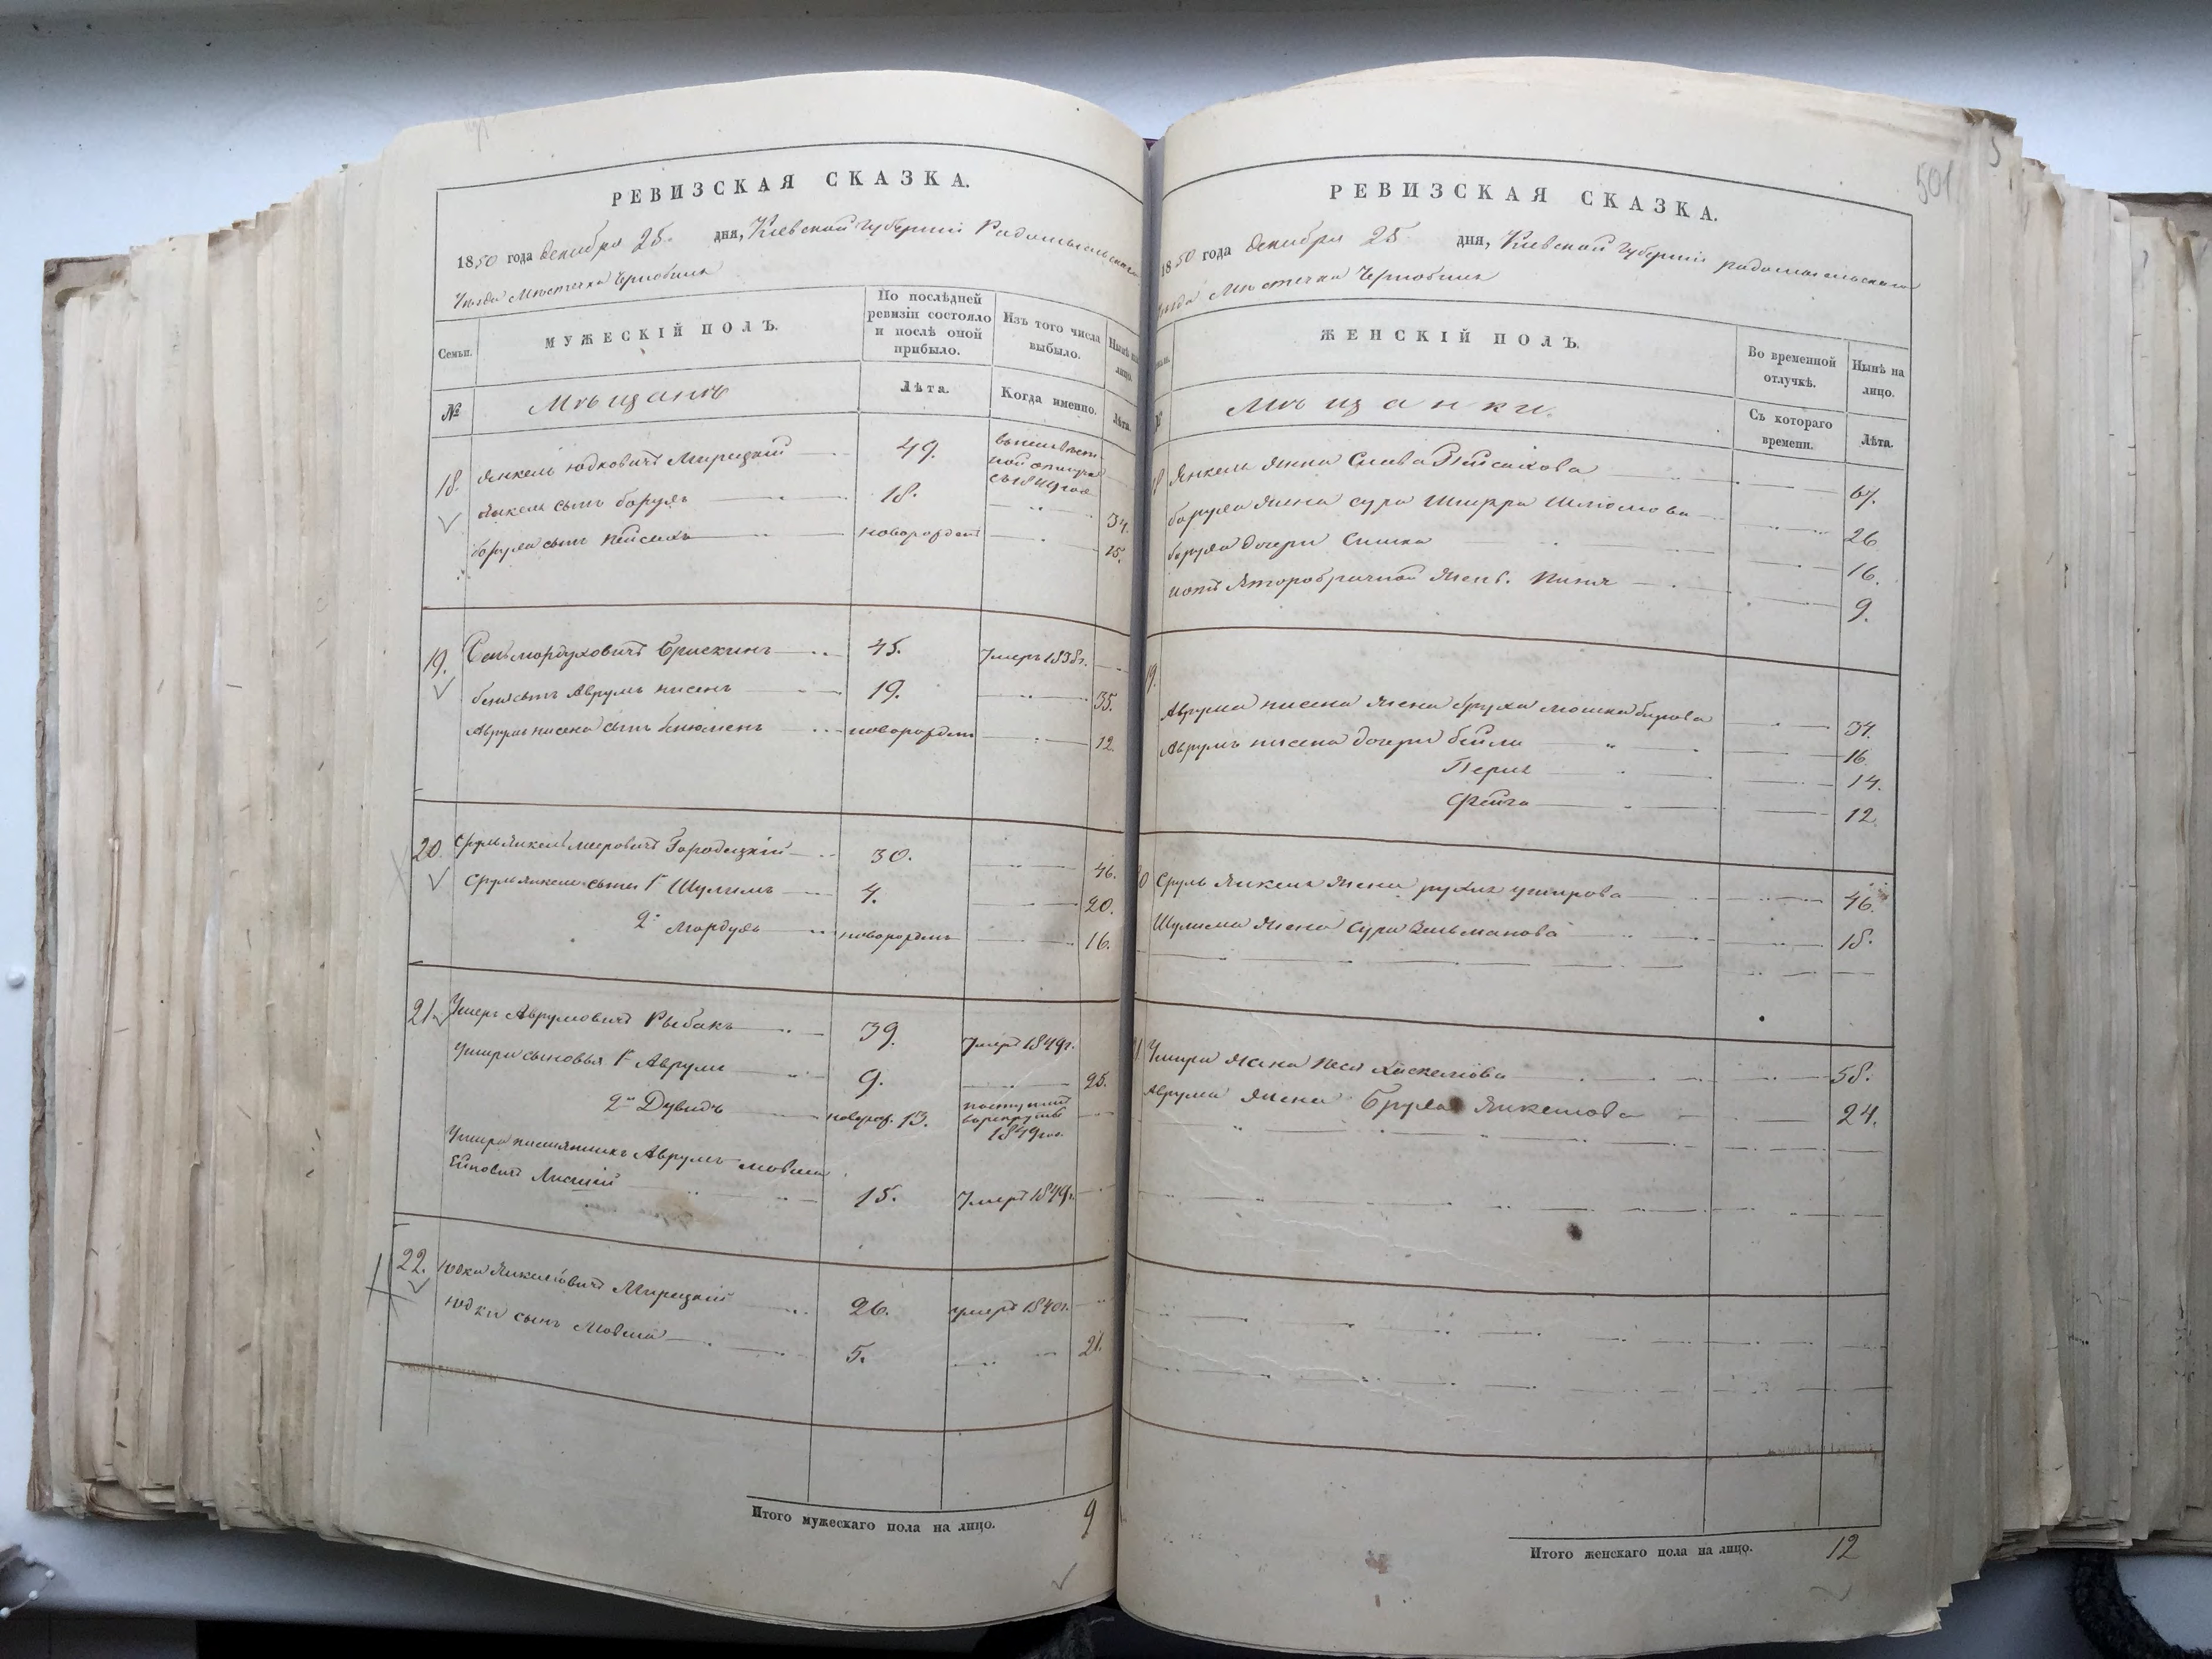 РЕВИЗСКАЯ СКАЗКА.
1850 года Декабря 25 дня, Киевской Губернии Радомысльскаго
Уезда Местечка Чернобыля
Семьи.
МУЖЕСКІЙ ПОЛЪ.
По послѣдней ревизіи состояло и послѣ оной прибыло.
Изъ того числа выбыло.
Нынѣ на лицо.
№
Мещане
Лѣта.
Когда именно.
Лѣта.
18. Янкель Юдковичъ Мирецкій 49.
Янкеля сынъ Борухъ 18. 34.
Боруха сынъ Пейсахъ новорожден 15.
19. Мордуховичъ Брискинъ 45. Умеръ 1838г.
сынъ Аврумъ Нисенъ 19. 35.
Аврумъ Нисена сынъ новорожден 12.
20. Сруль Янкель Меровичъ Городецкій 30. 46.
Сруль Янкеля сыны 1й Шулимъ 4. 20.
2й Мордухъ новорожден 16.
21. Ушеръ Аврумовичъ Рыбакъ 39. Умеръ 1849г.
Ушера сыновья 1й Аврумъ 9. 25.
2й Дувидъ новорож. 13. поступилъ в рекруты 1849 год.
Ушера племянникъ Аврумъ Мовша
15. Умеръ 1849г.
22. Юдка Янкелевичъ Мирецкій 26. умеръ 1840г.
Юдки сынъ Мовша 5. 21.
Итого мужескаго пола на лицо. 9
501
РЕВИЗСКАЯ СКАЗКА.
1850 года Декабря 25 дня, Киевской Губернии Радомысльскаго
Уезда Местечка Чернобыля
ЖЕНСКІЙ ПОЛЪ.
Во временной отлучкѣ.
Нынѣ на лицо.
Мещанки.
Съ котораго времени.
Лѣта.
Янкеля жена Слава Пейсахова 67.
Боруха жена Сура Шифра Шлиомова 26
Боруха дочери Симка 16.
9.
19. Аврума Нисена жена Бруха 34.
Аврумъ Нисена дочери Бейла 16
Перля 14.
Фейга 12.
Сруль Янкеля жена Рухля Ушерова 46.
Шулима жена Сура Вольманова 18.
Ушера жена Песя Хаскелиова 58.
Аврума жена Бруха Янкелиова 24.
Итого женскаго пола на лицо. 12